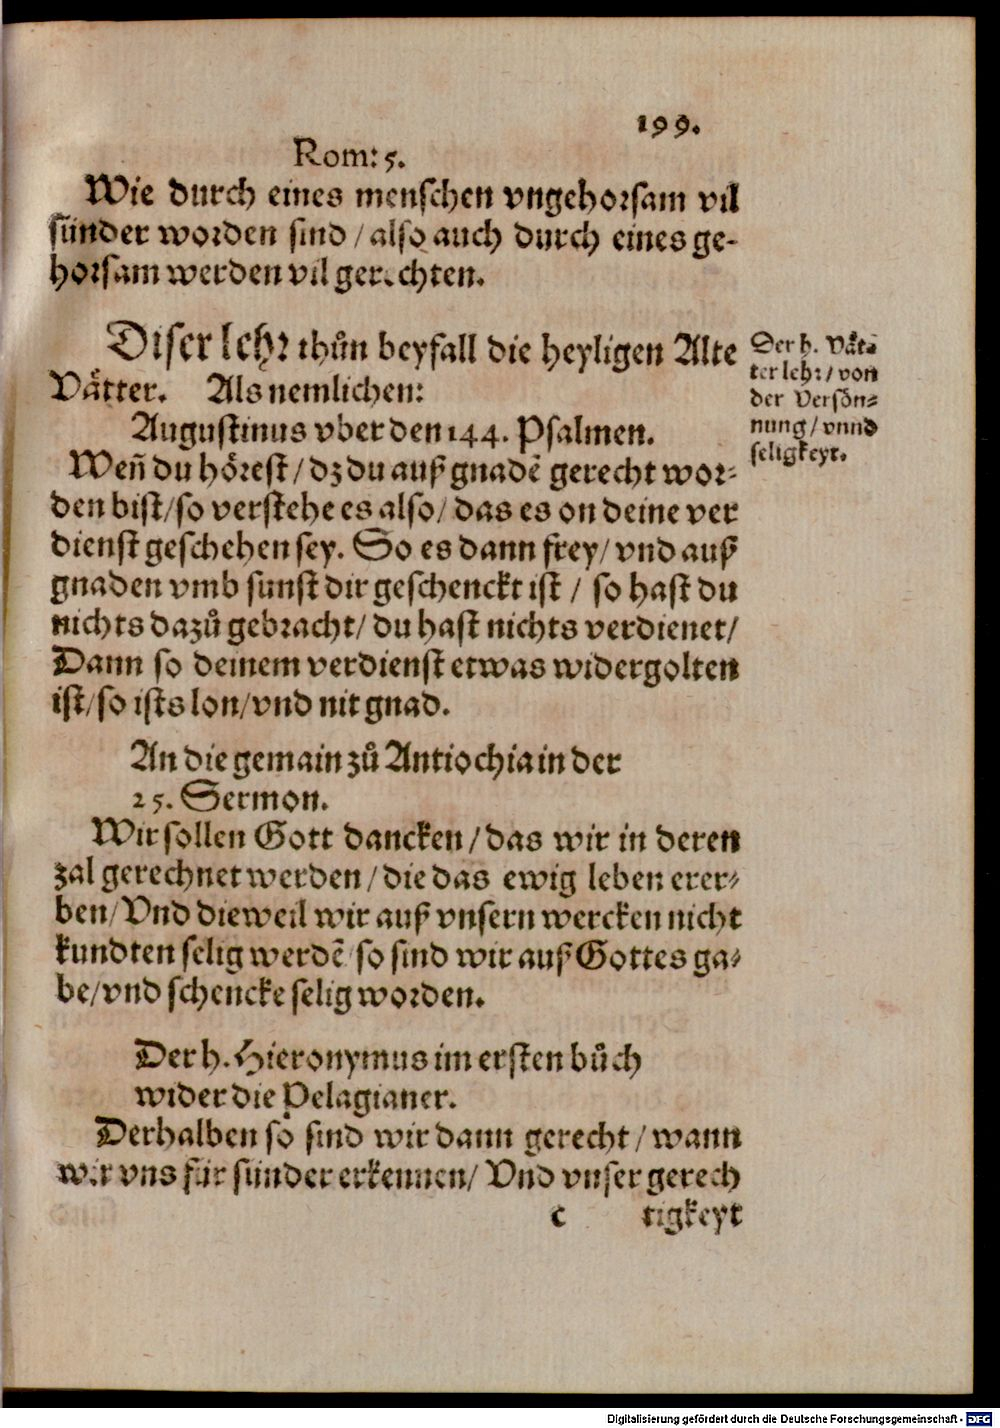 199.
Rom: 5.
Wie durch eines menschen vngehorsam vil
sünder worden sind / also auch durch eines ge-
horsam werden vil gerechten.
Diser lehr thůn beyfall die heyligen Alte
Vätter. Als nemlichen:
Der h. Vät-
ter lehr / von
der Versön-
nung / vnnd
seligkeyt.
Augustinus vber den 144. Psalmen.
Weñ du hörest / dz du auß gnadē gerecht wor-
den bist / so verstehe es also / das es on deine ver
dienst geschehen sey. So es dann frey / vnd auß
gnaden vmb sunst dir geschenckt ist / so hast du
nichts dazů gebracht / du hast nichts verdienet /
Dann so deinem verdienst etwas widergolten
ist / so ists lon / vnd nit gnad.
An die gemain zů Antiochia in der
25. Sermon.
Wir sollen Gott dancken / das wir in deren
zal gerechnet werden / die das ewig leben erer-
ben / Vnd dieweil wir auß vnsern wercken nicht
kundten selig werdē / so sind wir auß Gottes ga-
be / vnd schencke selig worden.
Der h. Hieronymus im ersten bůch
wider die Pelagianer.
Derhalben so sind wir dann gerecht / wann
wir vns für sünder erkennen / Vnd vnser gerech
c tigkeyt
Digitalisierung gefördert durch die Deutsche Forschungsgemeinschaft - DFG